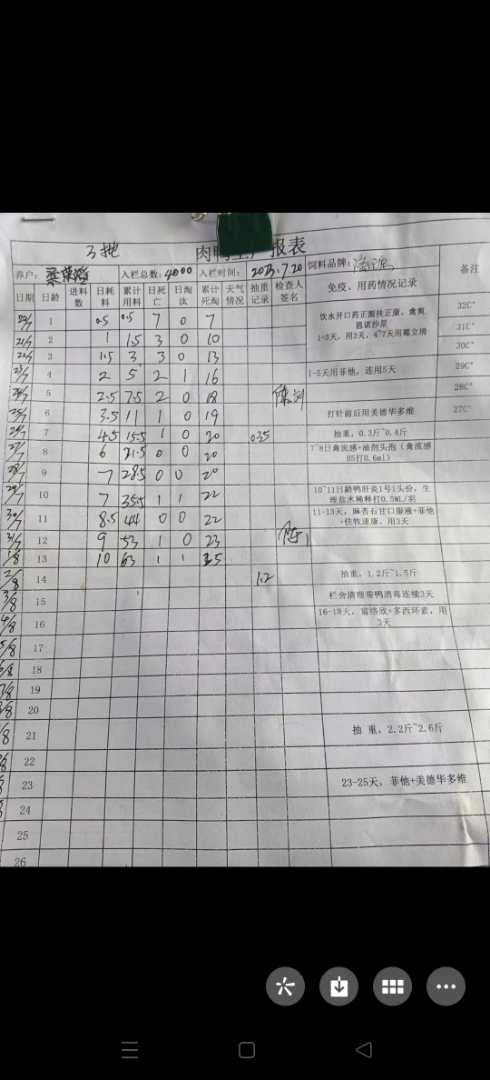 3批
肉鸭生产报表
养户: 入栏总数: 4000 入栏时间: 2023.7.20 饲料品牌: 备注
日期 日龄 进料数 日耗料 累计用料 日死亡 日淘汰 累计死淘 天气情况 抽重记录 检查人签名 免疫、用药情况记录
1 0.5 0.5 7 0 7 32C°
饮水开口药正菌扶正康、禽爽
21/7 2 1 1.5 3 0 10 31C°
1-3天，用3天，4-7天用霉立撈
22/7 3 1.5 3 3 0 13 30C°
23/7 4 2 5 2 1 16 1-5天用菲他，连用5天 29C°
5 2.5 7.5 2 0 18 28C°
25/7 6 3.5 11 1 0 19 打针前后用美德华多维 27C°
26/7 7 4.5 15.5 1 0 20 0.35 抽重，0.3斤~0.4斤
27/7 8 6 21.5 0 0 20 7~8日禽流感+油剂头孢（禽流感
H5打0.6ml）
28/7 9 7 28.5 0 0 20
29/7 10 7 35.5 1 1 22 10~11日龄鸭肝炎1号1头份，生
理盐水稀释打0.5ML/羽
30/7 11 8.5 44 0 0 22 11-13天，麻杏石甘口服液+菲他
+佳牧速康，用3天
31/7 12 9 53 1 0 23
1/8 13 10 63 1 1 25
2/8 14 1.2 抽重，1.2斤~1.5斤
3/8 15 栏舍清理带鸭消毒连续3天
4/8 16 16-18天，富络欣+多西环素，用
3天
5/8 17
6/8 18
7/8 19
8/8 20
/8 21 抽 重，2.2斤~2.6斤
22
23 23-25天，菲他+美德华多维
24
25
26